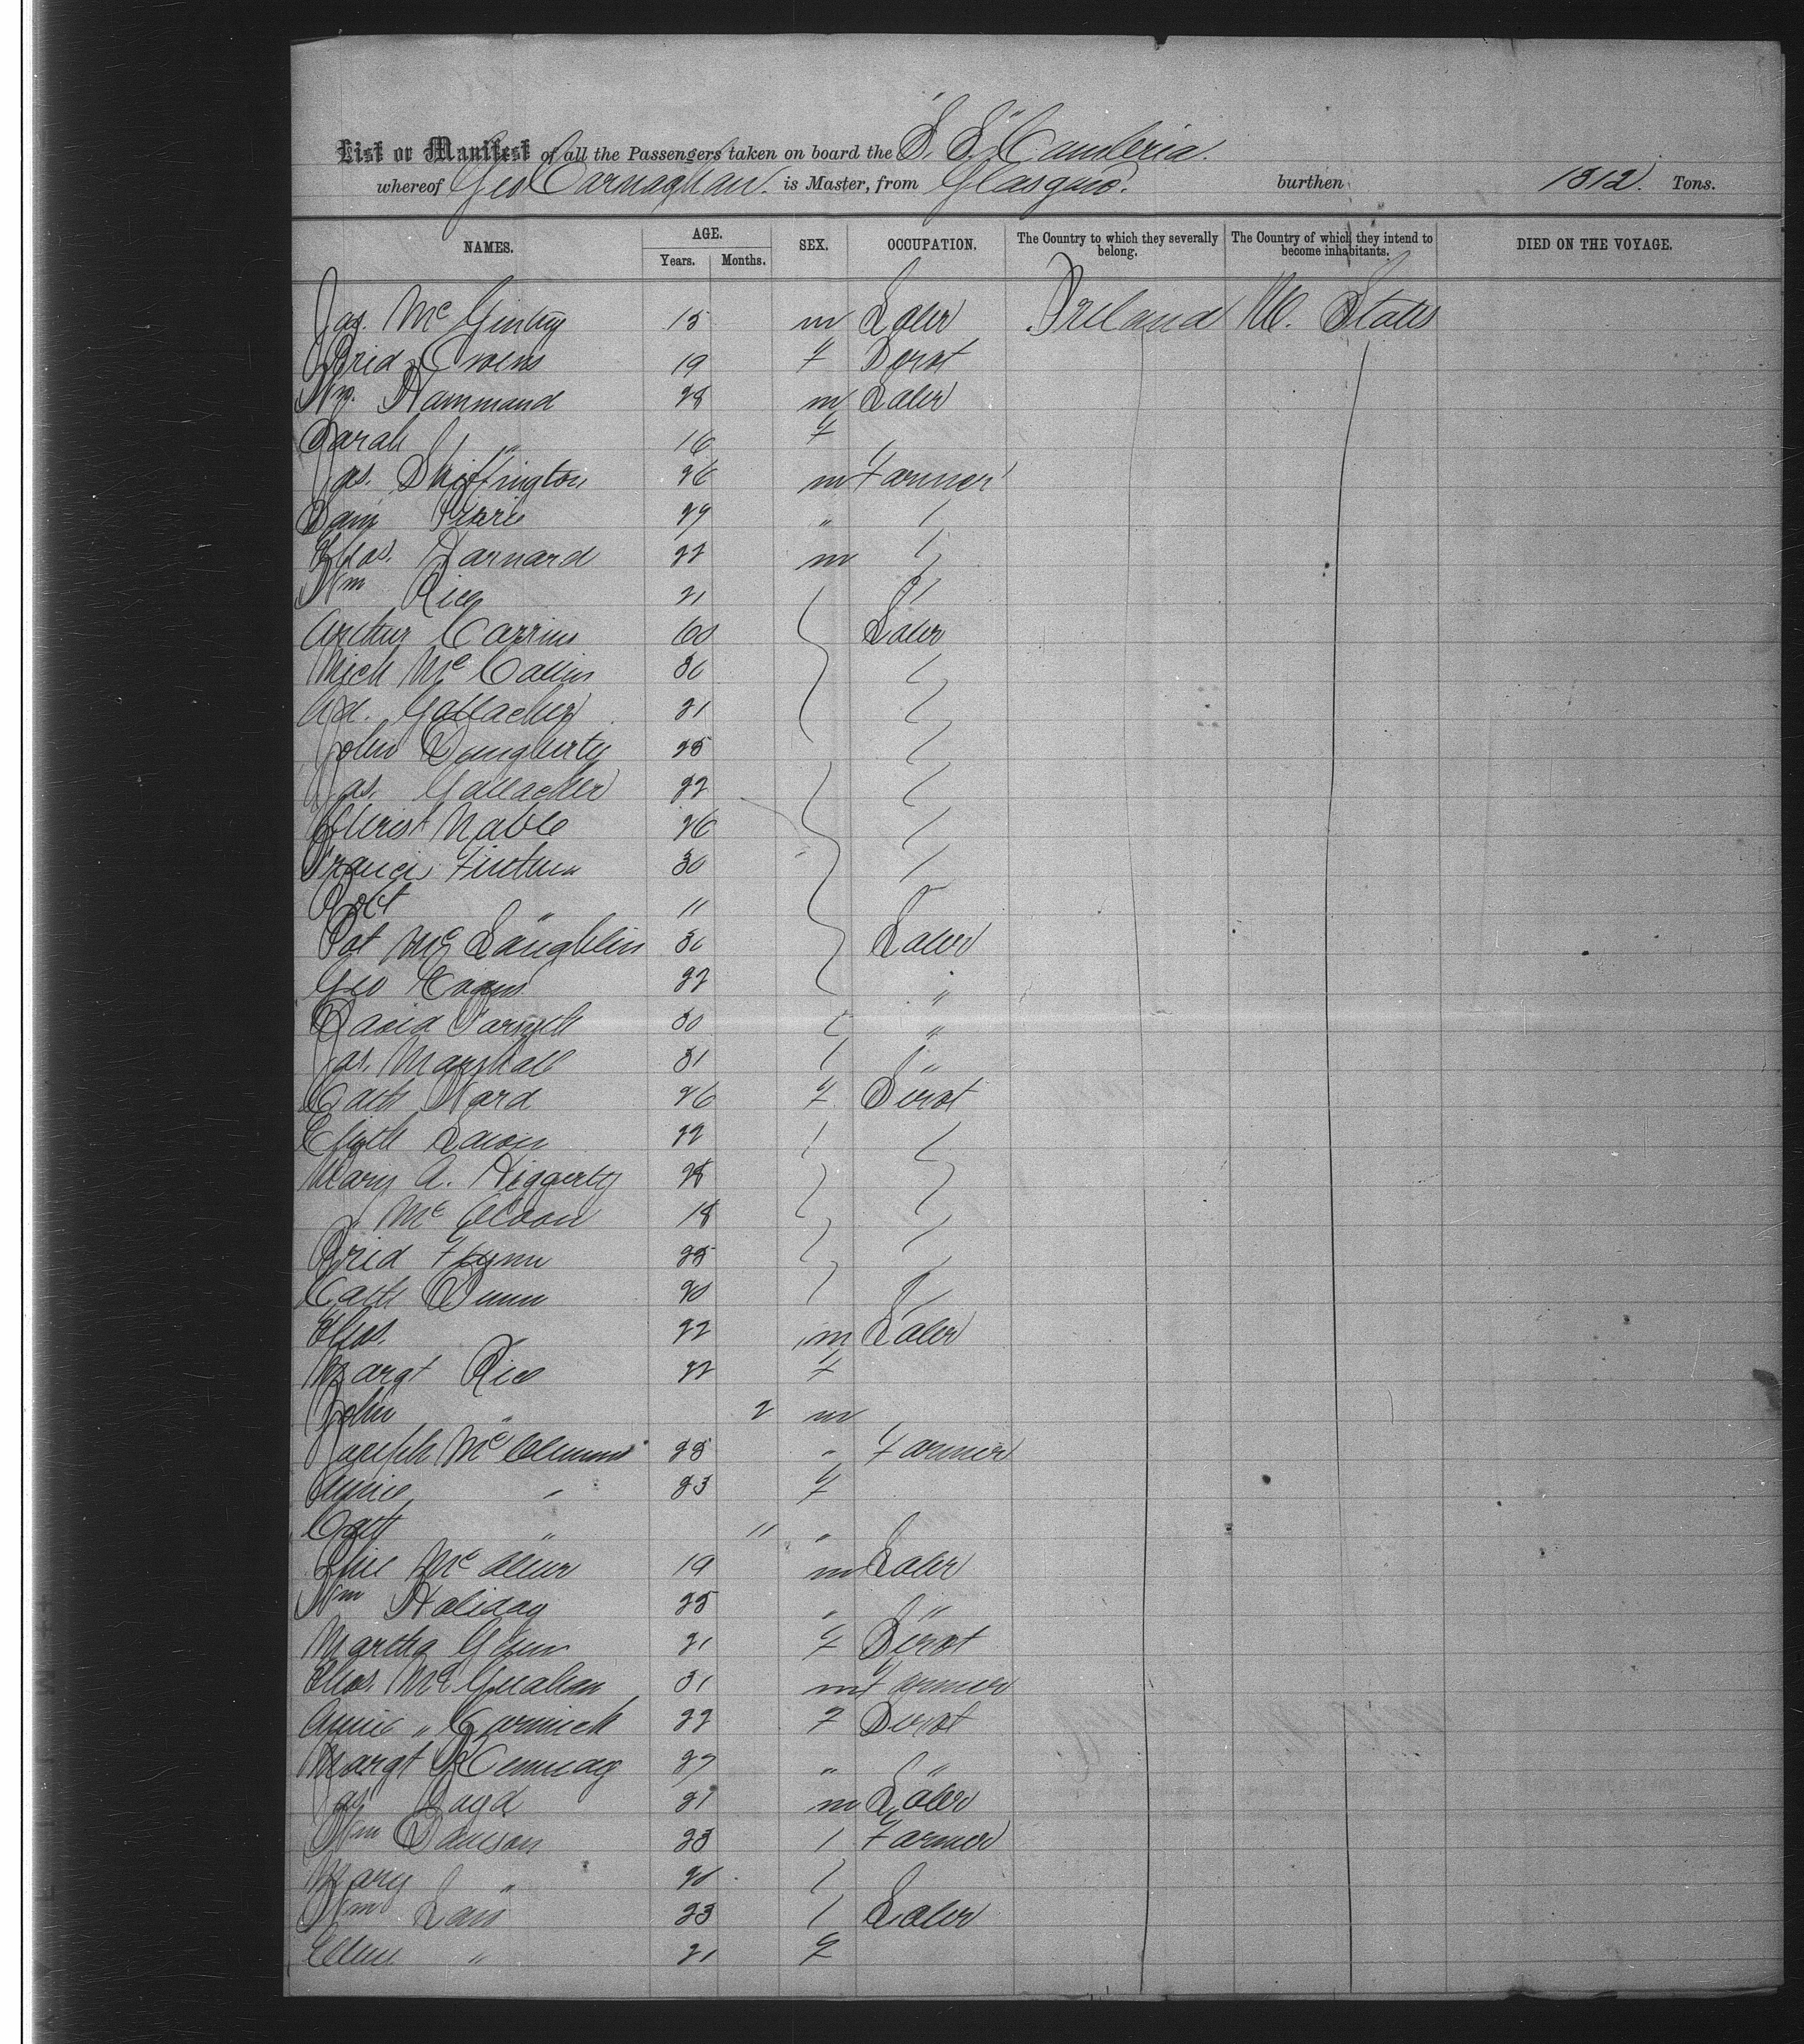 List or Manifest of all the Passengers taken on board the S. S. "Cambria.
whereof Geo Carnaghan. is Master, from Glasgow. burthen 1312. Tons.
NAMES. AGE. SEX. OCCUPATION. The Country to which they severally belong. The Country of which they intend to become inhabitants. DIED ON THE VOYAGE.
Years. Months.
Jas. Mc Ginley 15 m Labr Ireland U. States
Brid Owens 19 f Servt
Wm. Hammond 28 m Labr
Sarah " 16 f
Jas. Skiffington 26 m Farmer
Saml 29 "
Thos. Barnard 22 m
Wm Rice 21
Arthur 60 Labr
Mich Mc 36
Ad. Gallacher 21
John Dougherty 25
Jas. Gallacher 22
Christ Nable 26
Francis 30
Robt " 11
Pat Mc Laughlin 36 Labr
Geo 22 "
David Forsyth 30 "
Jas. Marshall 31 "
Cath Ward 26 f Servt
Elizth 22
Mary A. Higgerty 28
" Mc 18
Brid Flynn 25
Cath Dunn 20
Thos. 22 m Labr
Margt Rice 22 f
John " 2 m
Joseph Mc 25 " Farmer
Annie " 23 f
Cath " 11 "
Mc 19 m Labr
Wm Holiday 25 " "
Martha Glenn 21 f Servt
Thos. Mc 31 m Farmer
Annie " Cormick 22 f Servt
Margt 27 " "
Jas. Boyd 21 m Labr
Wm Dawson 23 Farmer
Mary " 20
Wm 23 Labr
Ellen " 21 f